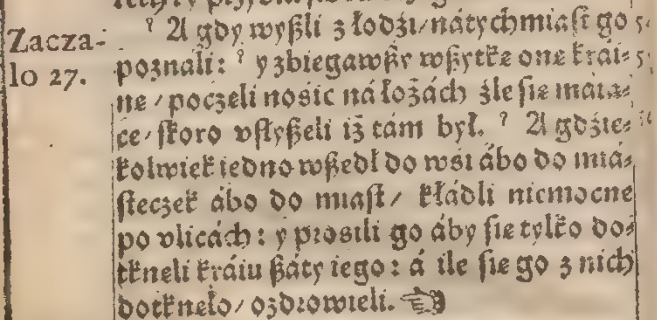 Zaczą-
lo 27.
A gdy wyßli z łodźi/ nátychmiaſt go
poználi: y zbiegawßy wßytkę onę kráí-
nę/ poczęli nośić ná łożách źle ſię máią-
ce/ ſkoro vſłyßeli iż tám był. A gdźie-
kolwiek iedno wßedł do wśi ábo do miá-
ſteczek ábo do miaſt/ kłádli niemocne
po vlicách: y prośili go áby ſię tylko do-
tknęli kráiu ßáty iego: á ile ſię go z nich
dotknęło/ ozdrowieli. ☜